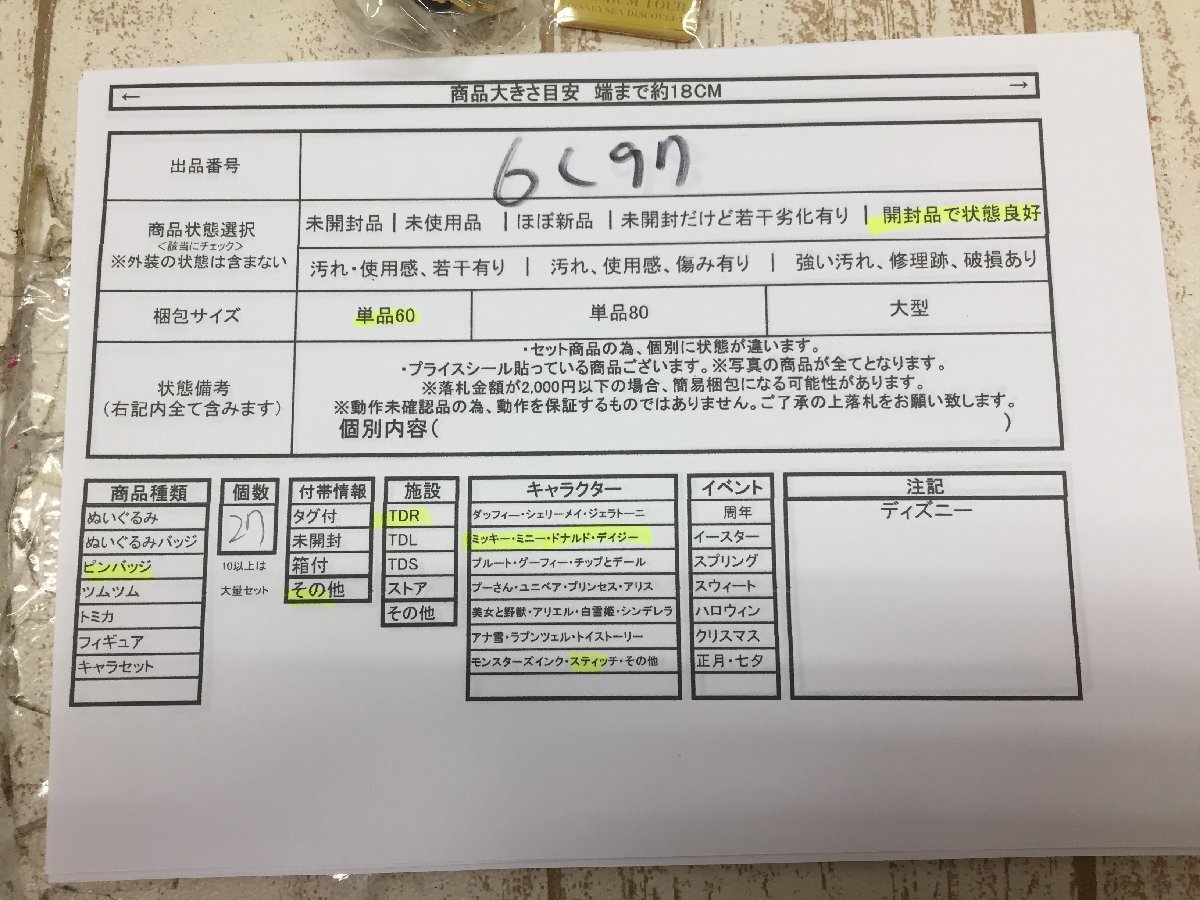 M TOUR
← 商品大きさ目安 端まで約18CM →
出品番号
6く97
商品状態選択
<該当にチェック>
※外装の状態は含まない
未開封品 | 未使用品 | ほぼ新品 | 未開封だけど若干劣化有り | 開封品で状態良好
汚れ・使用感、若干有り | 汚れ、使用感、傷み有り | 強い汚れ、修理跡、破損あり
梱包サイズ 単品60 単品80 大型
状態備考
(右記内全て含みます)
・セット商品の為、個別に状態が違います。
・プライスシール貼っている商品ございます。※写真の商品が全てとなります。
※落札金額が2,000円以下の場合、簡易梱包になる可能性があります。
※動作未確認品の為、動作を保証するものではありません。ご了承の上落札をお願い致します。
個別内容( )
商品種類
ぬいぐるみ
ぬいぐるみバッジ
ピンバッジ
ツムツム
トミカ
フィギュア
キャラセット
個数
27
10以上は
大量セット
付帯情報
タグ付
未開封
箱付
その他
施設
TDR
TDL
TDS
ストア
その他
キャラクター
ダッフィー・シェリーメイ・ジェラトーニ
ミッキー・ミニー・ドナルド・デイジー
プルート・グーフィー・チップとデール
プーさん・ユニベア・プリンセス・アリス
美女と野獣・アリエル・白雪姫・シンデレラ
アナ雪・ラプンツェル・トイストーリー
モンスターズインク・スティッチ・その他
イベント
周年
イースター
スプリング
スウィート
ハロウィン
クリスマス
正月・七夕
注記
ディズニー